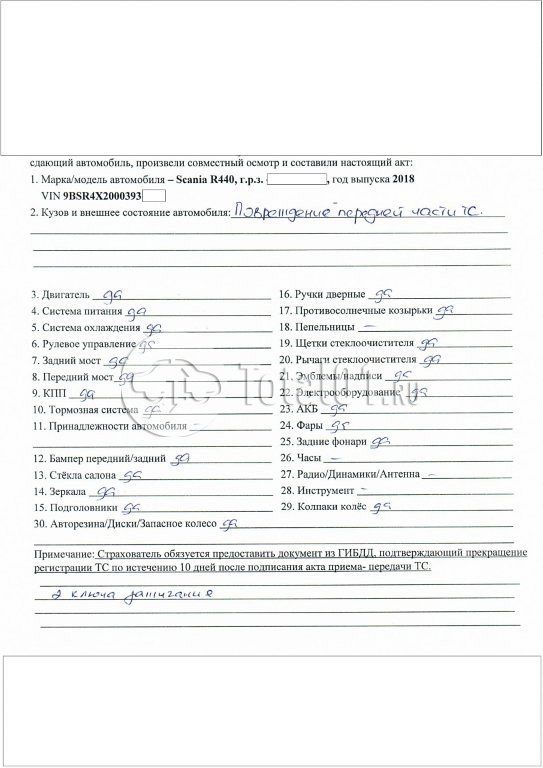 сдающий автомобиль, произвели совместный осмотр и составили настоящий акт:
1. Марка/модель автомобиля – Scania R440, г.р.з. , год выпуска 2018
VIN 9BSR4X2000393
2. Кузов и внешнее состояние автомобиля: Повреждение передней части ТС.
3. Двигатель да
16. Ручки дверные да
4. Система питания да
17. Противосолнечные козырьки да
5. Система охлаждения да
18. Пепельницы –
6. Рулевое управление да
19. Щетки стеклоочистителя да
7. Задний мост да
20. Рычаги стеклоочистителя да
8. Передний мост да
21. Эмблемы/надписи да
9. КПП да
22. Электрооборудование да
10. Тормозная система да
23. АКБ да
11. Принадлежности автомобиля –
24. Фары да
25. Задние фонари да
12. Бампер передний/задний да
26. Часы –
13. Стёкла салона да
27. Радио/Динамики/Антенна –
14. Зеркала да
28. Инструмент –
15. Подголовники да
29. Колпаки колёс да
30. Авторезина/Диски/Запасное колесо да
Total01.ru
Примечание: Страхователь обязуется предоставить документ из ГИБДД, подтверждающий прекращение
регистрации ТС по истечению 10 дней после подписания акта приема- передачи ТС.
2 ключа зажигания